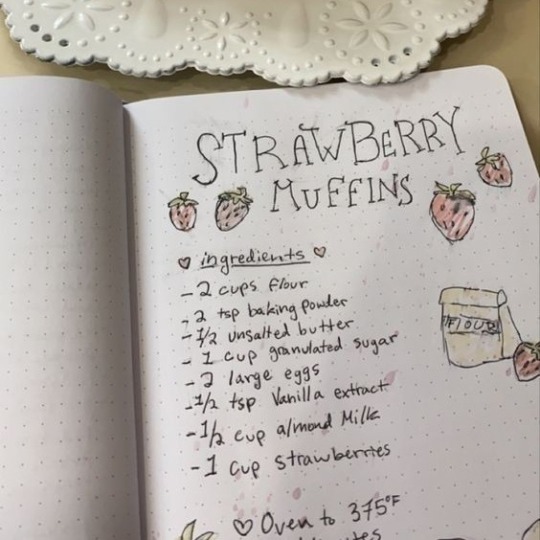 STRAWBERRY
MUFFINS
ingredients
- 2 cups flour
- 2 tsp baking powder
- 1/2 unsalted butter
- 1 cup granulated sugar
- 2 large eggs
- 1/2 tsp Vanilla extract
- 1/2 cup almond Milk
- 1 cup strawberries
FLOUR
Oven to 375°F